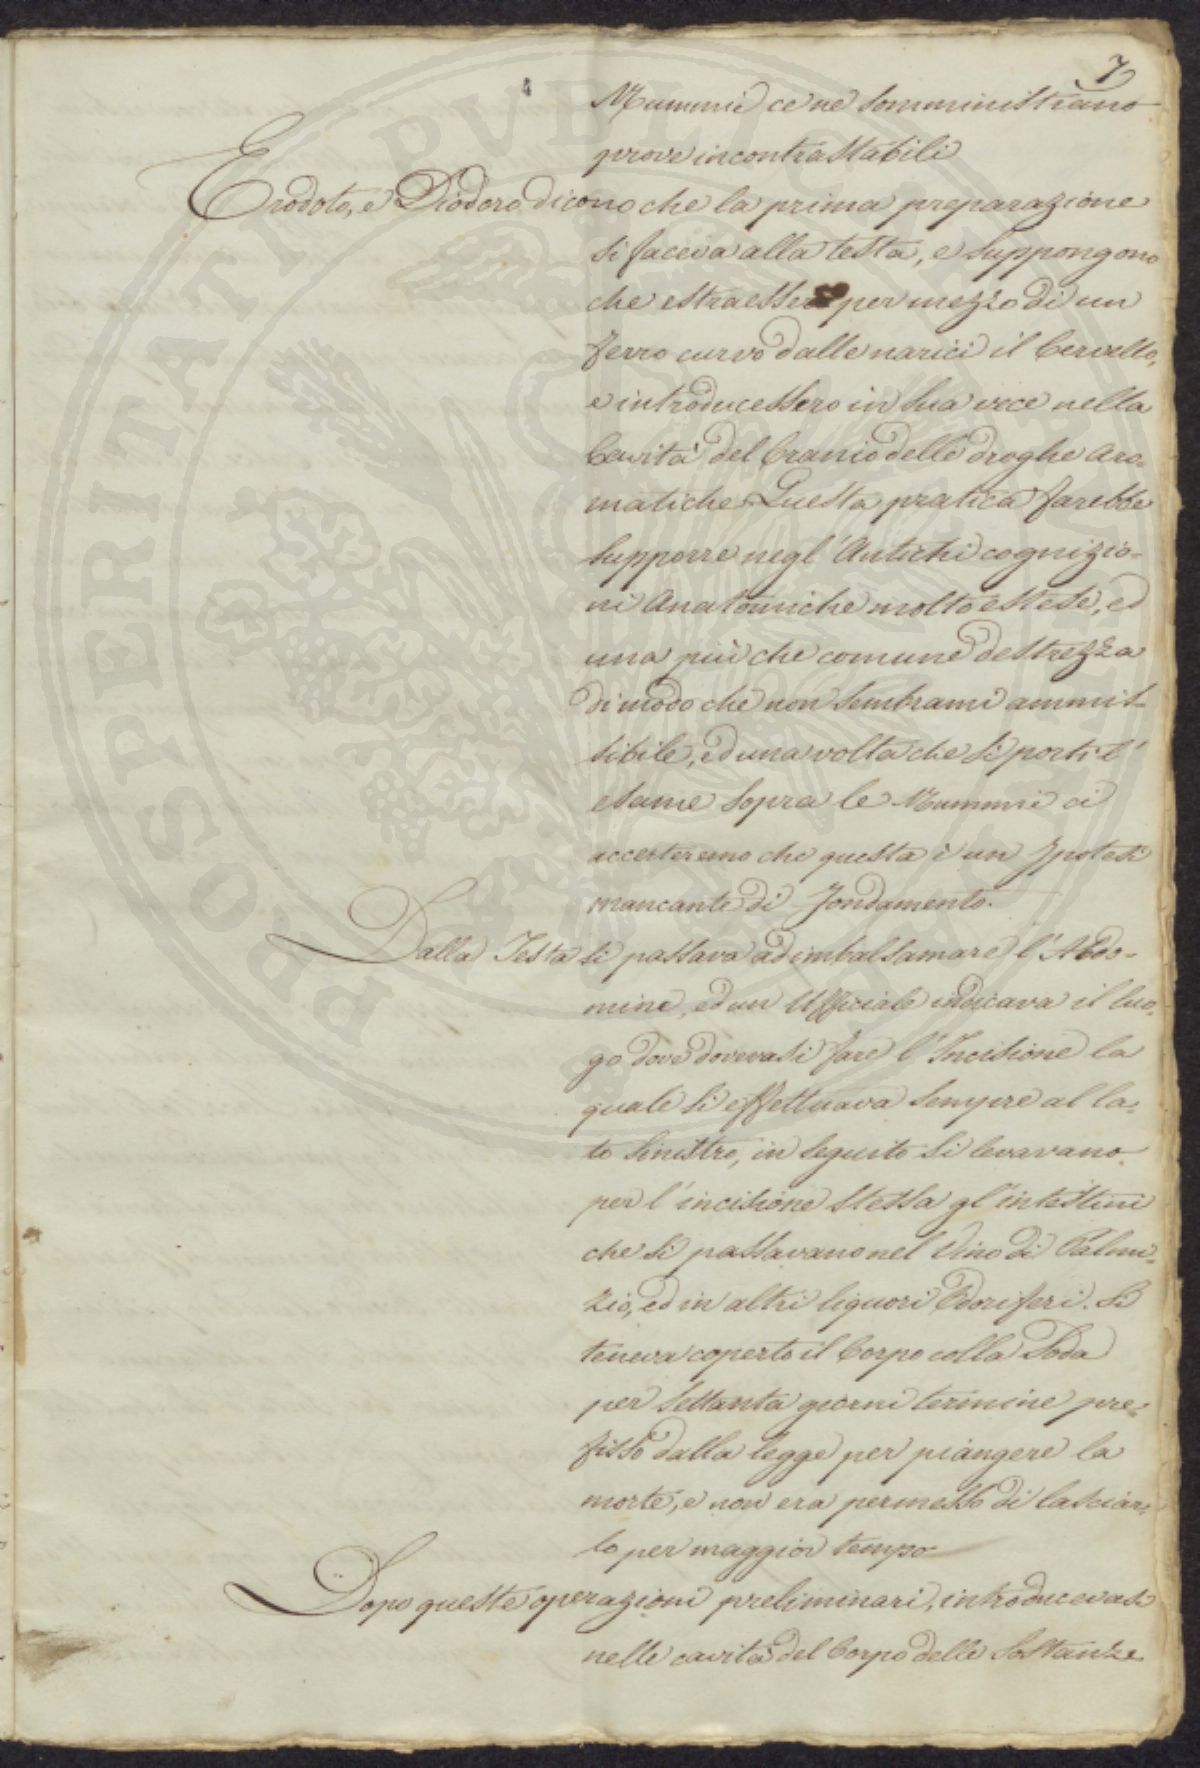 7
Mummie ce ne somministrano
prove incontrastabili
Erodoto, e Diodoro dicono che la prima preparazione
si faceva alla testa, e suppongono
che estraessero per mezzo di un
ferro curvo dalle narici il Cervello,
e introducessero in sua vece nella
Cavità del Cranio delle droghe Aro=
matiche. Questa pratica farebbe
supporre negl' Antichi cognizio=
ni Anatomiche molto estese, ed
una più che comune destrezza
di modo che non sembrami ammis=
sibile, ed una volta che si porti l'
esame sopra le Mummie ci
accerteremo che questa è un Ipotesi
mancante di fondamento.
Dalla Testa si passava ad imbalsamare l'Addo=
mine, ed un Ufficiale indicava il luo=
go dove dovevasi fare l'Incisione la
quale si effettuava sempre al la=
to sinistro, in seguito si levavano
per l'incisione stessa gl'intestini
che si passavano nel Vino di Palmi=
zio, ed in altri liquori Odoriferi. Si
teneva coperto il Corpo colla Soda
per settanta giorni termine pre=
fisso dalla legge per piangere la
morte, e non era permesso di lasciar=
lo per maggior tempo
Dopo queste operazioni preliminari, introducevasi
nelle cavità del Corpo delle Sostanze
PVBLICAE
PROSPERITATI